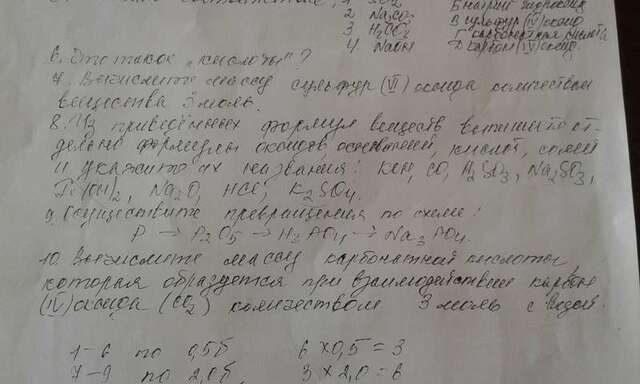 1 SO2 Б натрий гидроксид
2 Na2CO3 В сульфур (IV) оксид
3 H2CO3 Г карбонатная кислота
4 NaOH Д карбон (IV) оксид.
6. Это такое „кислоты"?
7. Вычислите массу сульфур (VI) оксида количеством
вещества 3 моль.
8. Из приведённых формул веществ выпишите от-
дельно формулы оксидов, оснований, кислот, солей
и укажите их названия: KOH, CO, H2SO3, Na2SO3,
Fe(OH)2, Na2O, HCl, K2SO4.
9. Осуществите превращения по схеме:
P → P2O5 → H3PO4 → Na3PO4.
10. Вычислите массу карбонатной кислоты,
которая образуется при взаимодействии карбон
(IV) оксида (CO2) количеством 3 моль с водой.
1-6 по 0,5б 6 × 0,5 = 3
7-9 по 2,0б, 3 × 2,0 = 6